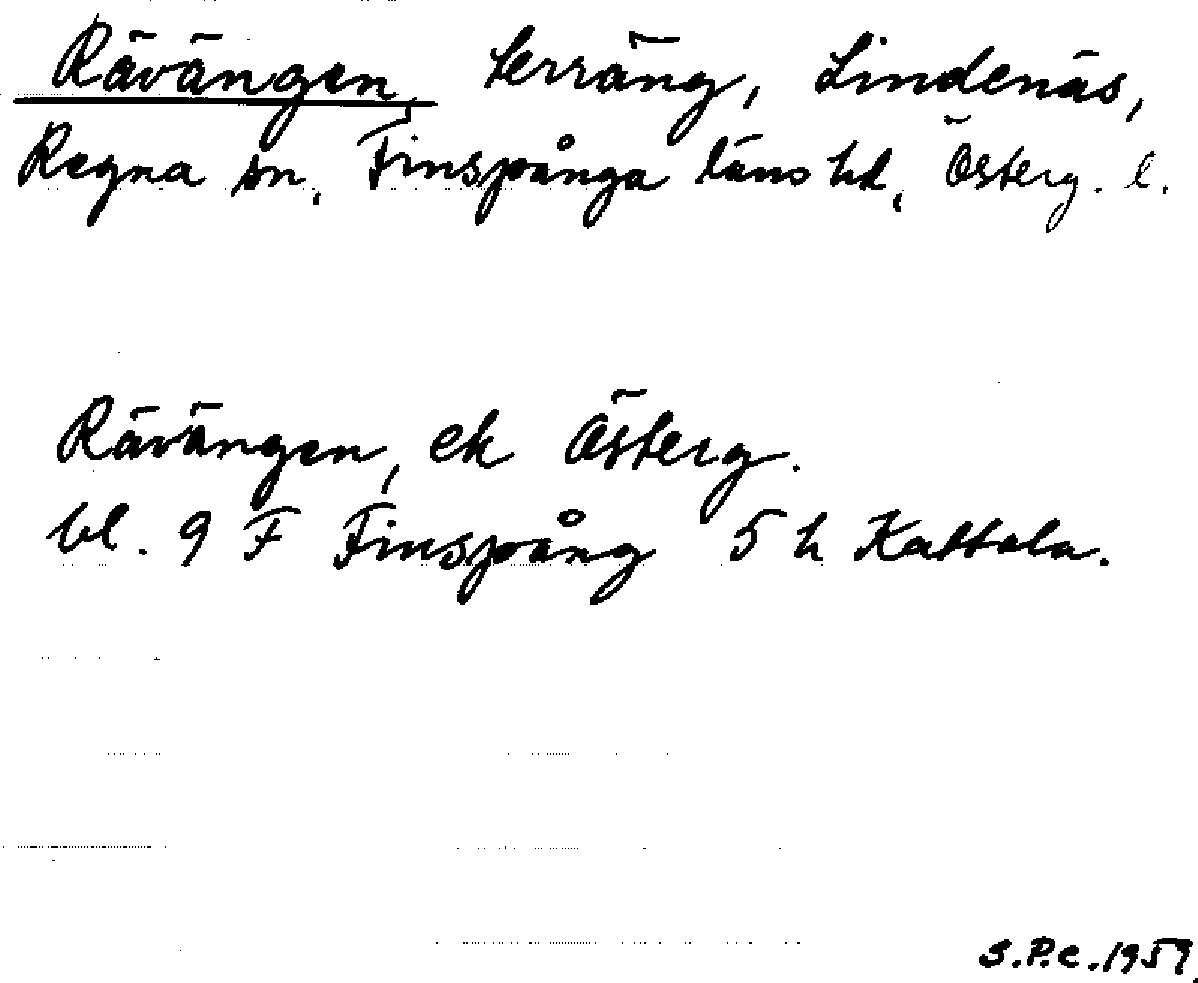 Rävängen, terräng, Lindenäs,
Regna sn, Finspånga läns hd, Österg. l.
Rävängen, ek Österg.
bl. 9 F Finspång 5 h Kattala.
S.P.C. 1959.